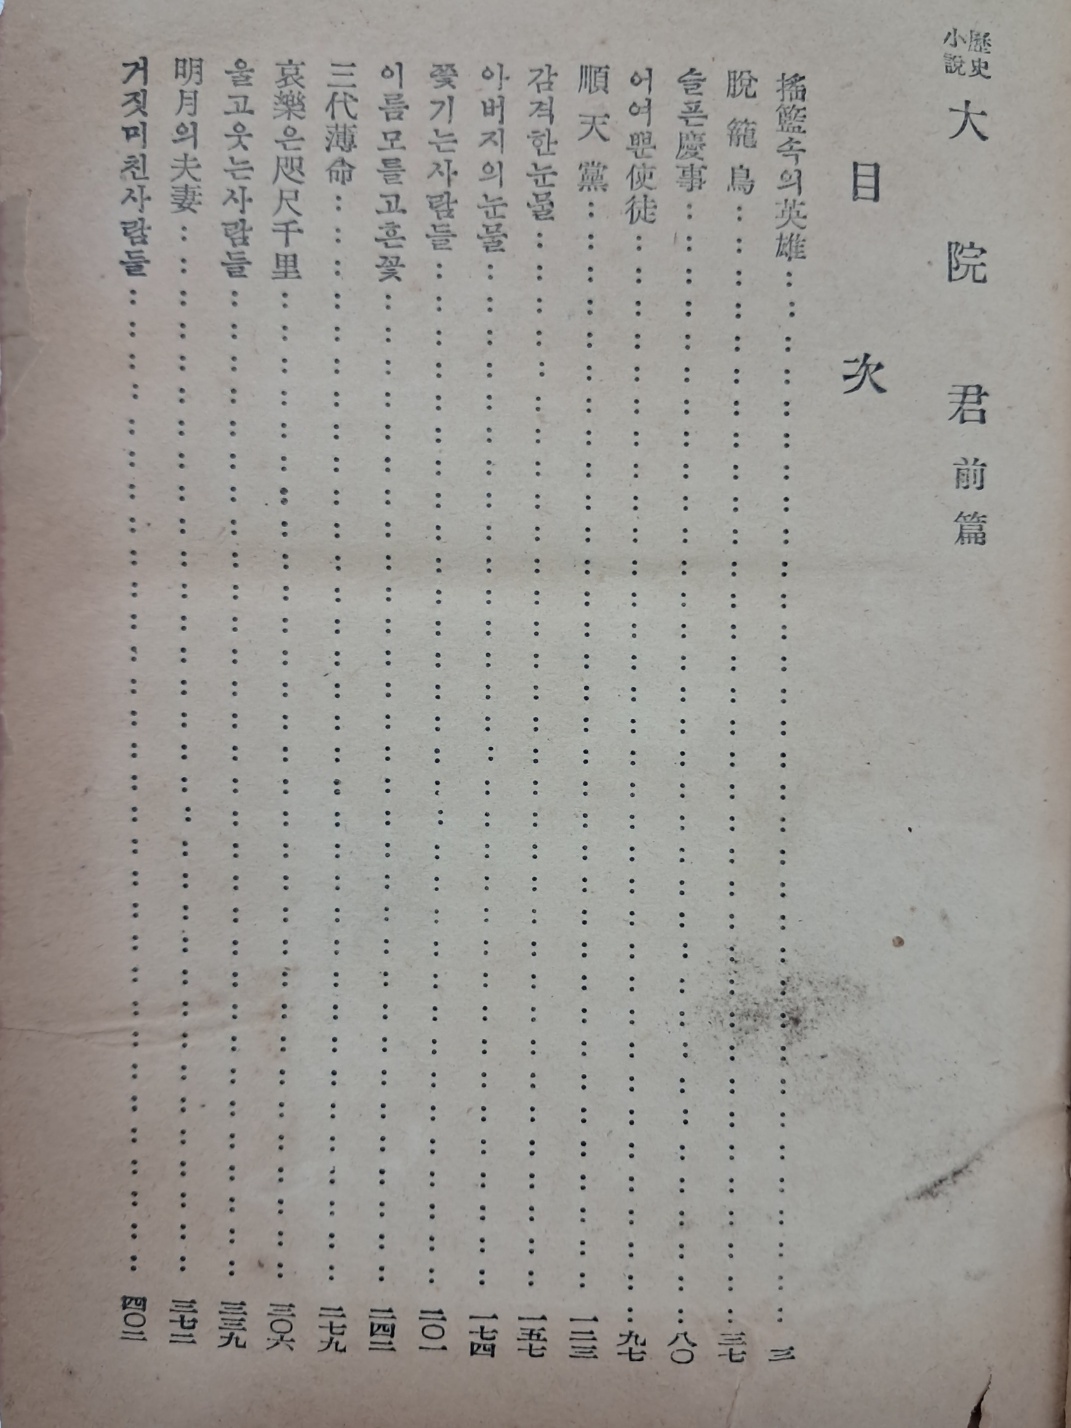 歷史小說 大院君 前篇
目次
搖籃속의英雄 三
脫籠鳥 三七
슬픈慶事 八〇
어여뿐使徒 九七
順天黨 一二三
감격한눈물 一五七
아버지의눈물 一七四
쫓기는사람들 二〇一
이름모를고흔꽃 二四二
三代薄命 二七九
哀樂은咫尺千里 三〇六
울고웃는사람들 三三九
明月의夫妻 三七二
거짓미친사람들 四〇二